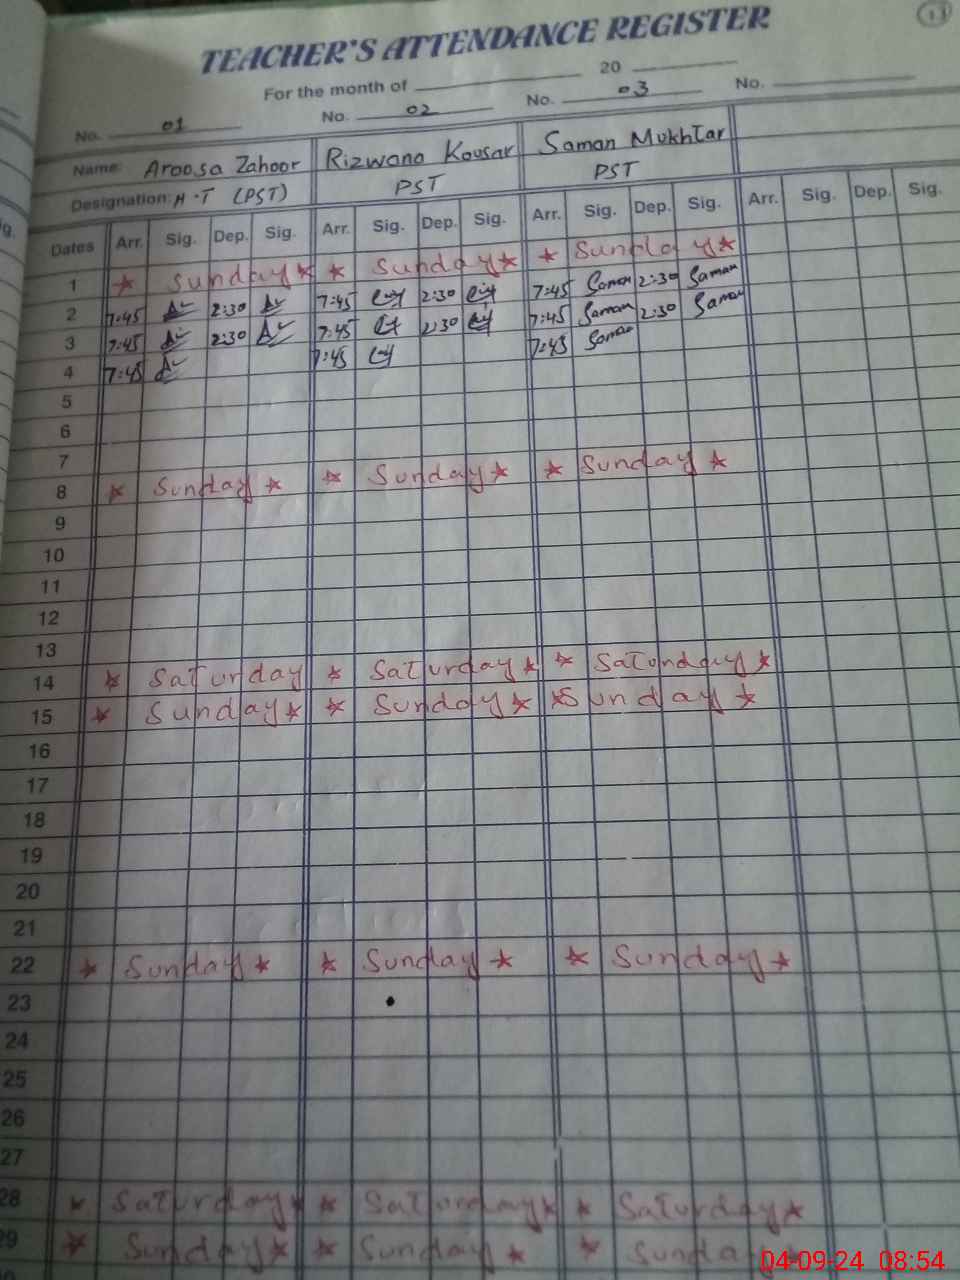 11
TEACHER'S ATTENDANCE REGISTER
For the month of 20
No. 01 No. 02 No. 03 No.
Name: Aroosa Zahoor Rizwana Kousar Saman Mukhtar
Designation: H.T (PST) PST PST
Dates Arr. Sig. Dep. Sig. Arr. Sig. Dep. Sig. Arr. Sig. Dep. Sig. Arr. Sig. Dep. Sig.
1 * Sunday * * Sunday * * Sunday *
2 7:45 2:30 7:45 2:30 7:45 Saman 2:30 Saman
3 7:45 2:30 7:45 2:30 7:45 Saman 2:30 Saman
4 7:45 7:45 7:45 Saman
5
6
7
8 * Sunday * * Sunday * * Sunday *
9
10
11
12
13
14 * Saturday * Saturday * * Saturday *
15 * Sunday * * Sunday * * Sunday *
16
17
18
19
20
21
22 * Sunday * * Sunday * * Sunday *
23
24
25
26
27
28 * Saturday * * Saturday * * Saturday *
29 * Sunday * * Sunday * * Sunday
04-09-24 08:54